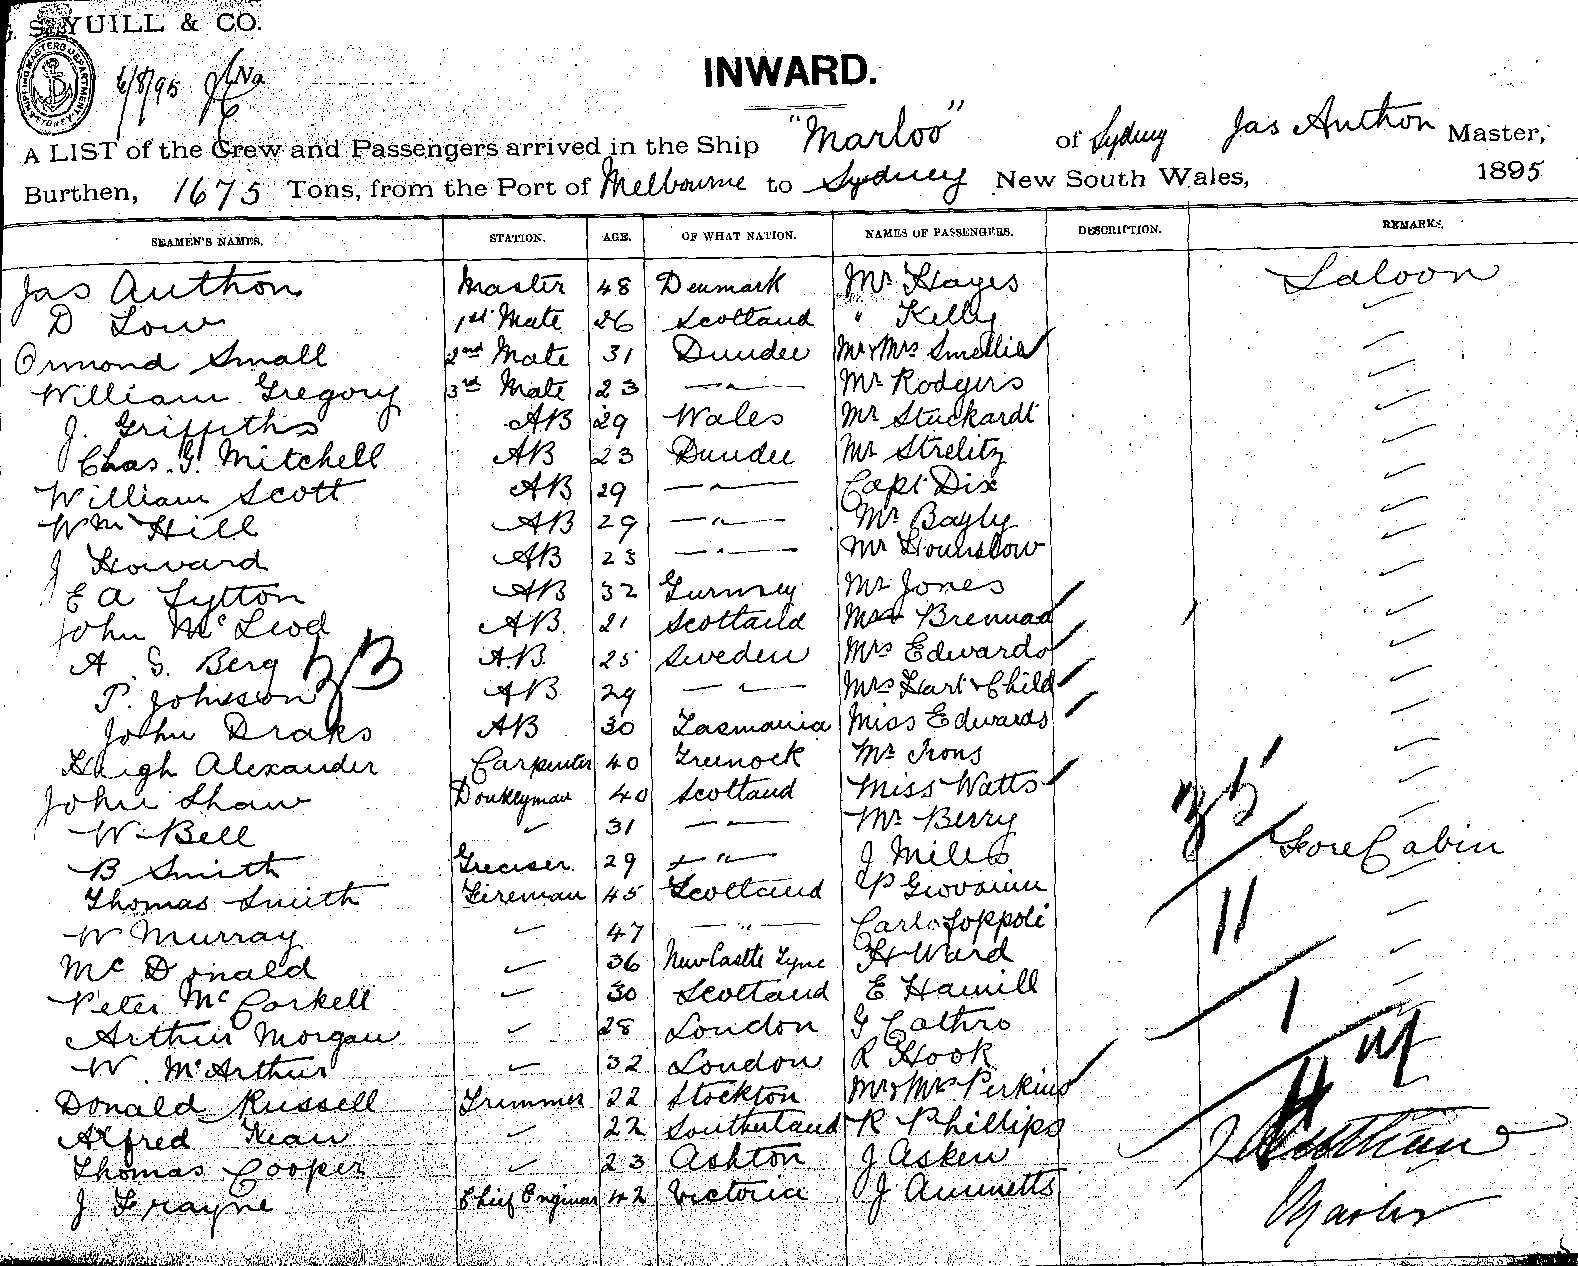 S. YUILL & CO.
6/8/95
INWARD.
A LIST of the Crew and Passengers arrived in the Ship "Marloo" of Sydney Jas Authon Master,
Burthen, 1675 Tons, from the Port of Melbourne to Sydney New South Wales, 1895
SEAMEN'S NAMES. STATION. AGE. OF WHAT NATION. NAMES OF PASSENGERS. DESCRIPTION. REMARKS.
Jas Authon Master 48 Denmark Mr Hayes Saloon
D Low 1st Mate 26 Scotland " Kelly
Ormond Small 2nd Mate 31 Dundee Mr & Mrs Smellie
William Gregory 3rd Mate 23 —"— Mr Rodgers
J. Griffiths AB 29 Wales Mr Stuckardt
Chas. G. Mitchell AB 23 Dundee Mr Strelitz
William Scott AB 29 —"— Capt Dix
Wm Hill AB 29 —"— Mr Bagly
J Howard AB 23 —"— Mr Hounslow
E A Lytton AB 32 Gurnsey Mr Jones
John McLeod AB 21 Scotland Brennad
A. G. Berg AB 25 Sweden Mrs Edwards
P. Johnson AB 29 —"— Mrs Hart & Child
John Draks AB 30 Tasmania Miss Edwards
Hugh Alexander Carpenter 40 Greenock Mr Irons
John Shaw Donkeyman 40 Scotland Miss Watts
W Bell " 31 —"— Mr Berry
B Smith Greaser 29 —"— J Miles Fore Cabin
Thomas Smith Fireman 45 Scotland P Giovanni
W Murray " 47 —"— Carlo Foppoli 11
Mc Donald " 36 New Castle Tyne H Ward
Peter McCorkell " 30 Scotland E Hamill
Arthur Morgan " 28 London G Cathro 1
W. McArthur " 32 London R Hook
Donald Russell Trimmer 22 Stockton Mr & Mrs Perkins
Alfred Kean " 22 Southerland R Phillips
Thomas Cooper " 23 Ashton J Asken
J Frayne Chief Engineer 42 Victoria J Aumnetts